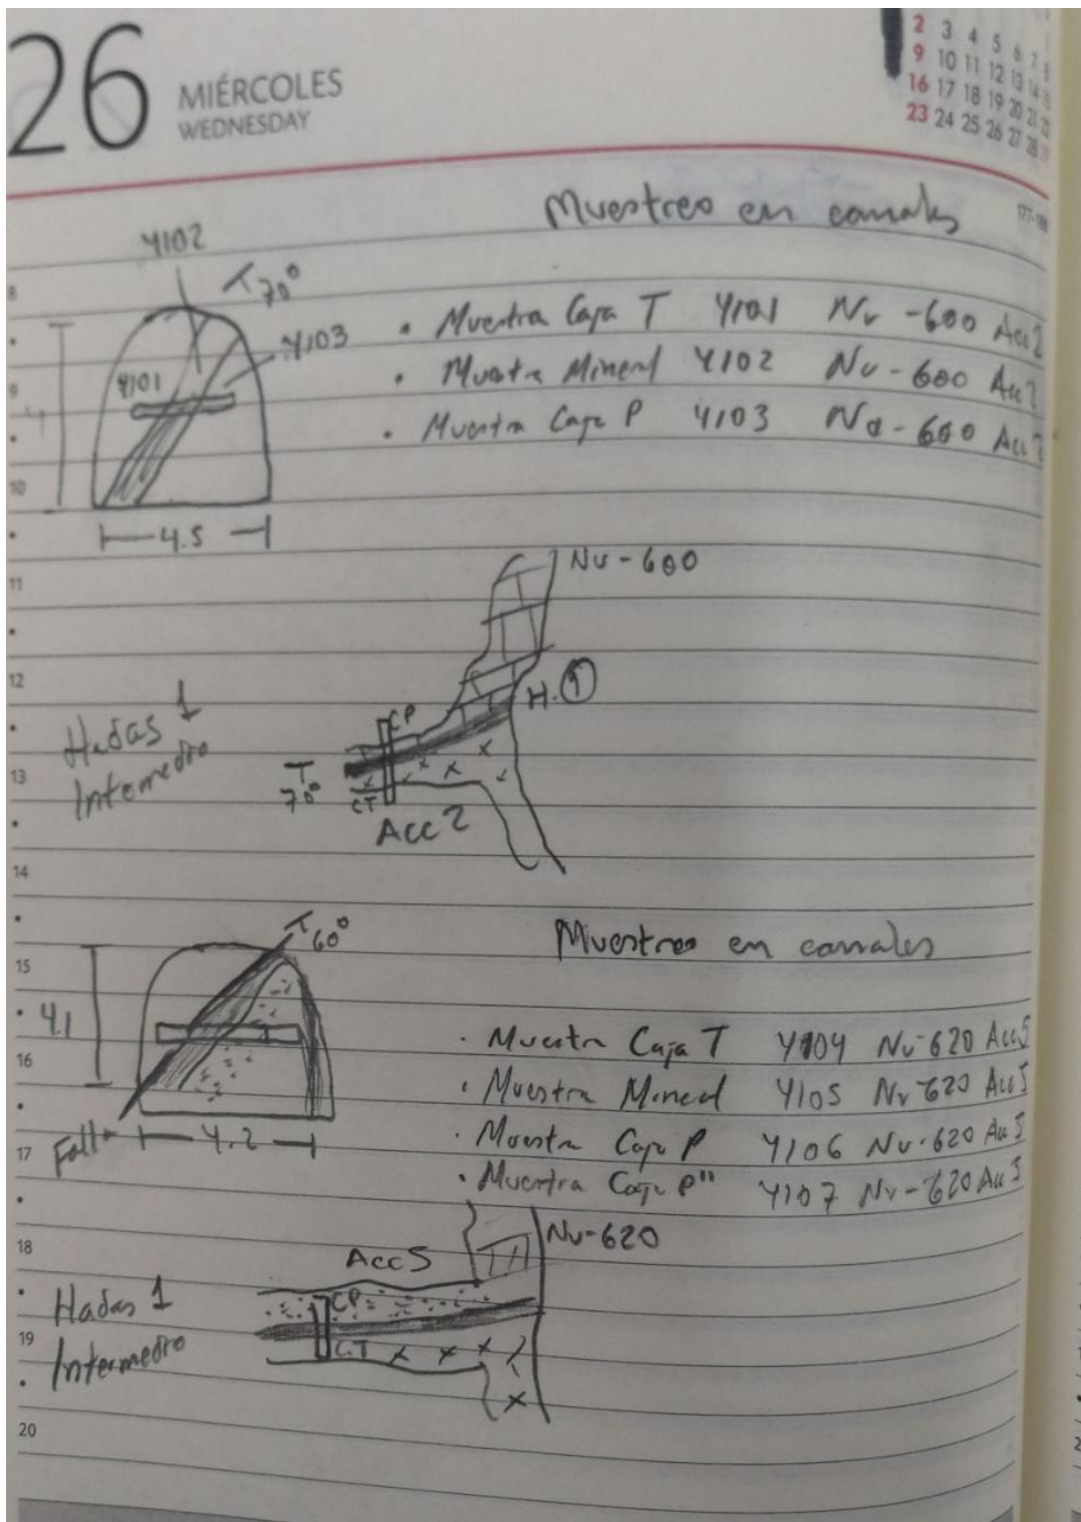 26 MIÉRCOLES
WEDNESDAY
2 3 4 5 6 7 8
9 10 11 12 13 14 15
16 17 18 19 20 21 22
23 24 25 26 27 28 29
Muestreo en canales
4102
70°
4103
4101
4.5
• Muestra Caja T 4101 Nv -600 Acc 2
• Muestra Mineral 4102 Nv - 600 Acc 2
• Muestra Caja P 4103 Nv - 600 Acc 2
8
9
10
11
Nv - 600
12
H. 1
CP
Hadas 1
Intermedio
13
70°
CT
Acc 2
14
60°
Muestreo en canales
15
4.1
16
• Muestra Caja T 4104 Nv-620 Acc 5
• Muestra Mineral 4105 Nv-620 Acc 5
• Muestra Caja P 4106 Nv-620 Acc 5
• Muestra Caja P" 4107 Nv-620 Acc 5
Falla
4.2
17
18
Nv-620
Acc 5
Hadas 1
Intermedio
CP
C.T
19
20